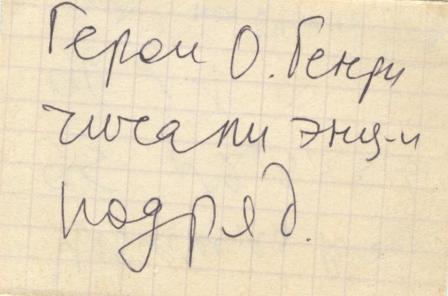 Герои О. Генри
читали энц-и
подряд.